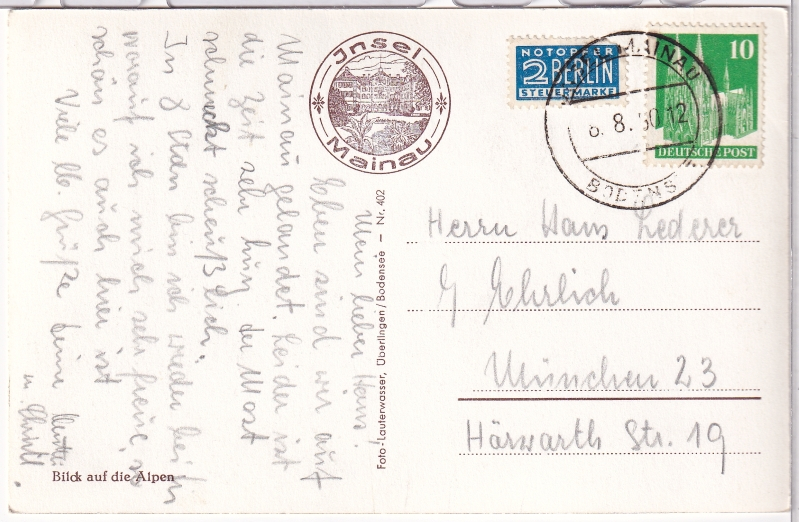 Insel
Mainau
NOTOPFER
2 BERLIN
STEUERMARKE
10
DEUTSCHE POST
MAINAU
8.50-12
BODENS
Mein lieber Hans!
Eben sind wir auf
Mainau gelandet. Leider ist
die Zeit sehr kurz. Der Most
schmeckt scheußlich.
In 8 Tagen bin ich wieder bei Dir
worauf ich mich sehr freue, so
schön es auch hier ist
Viele lb. Grüße Deine
Herrn Hans Lederer
b/ Ehrlich
München 23
Hörwarth Str. 19
Foto-Lauterwasser, Überlingen/Bodensee — Nr. 402
Blick auf die Alpen